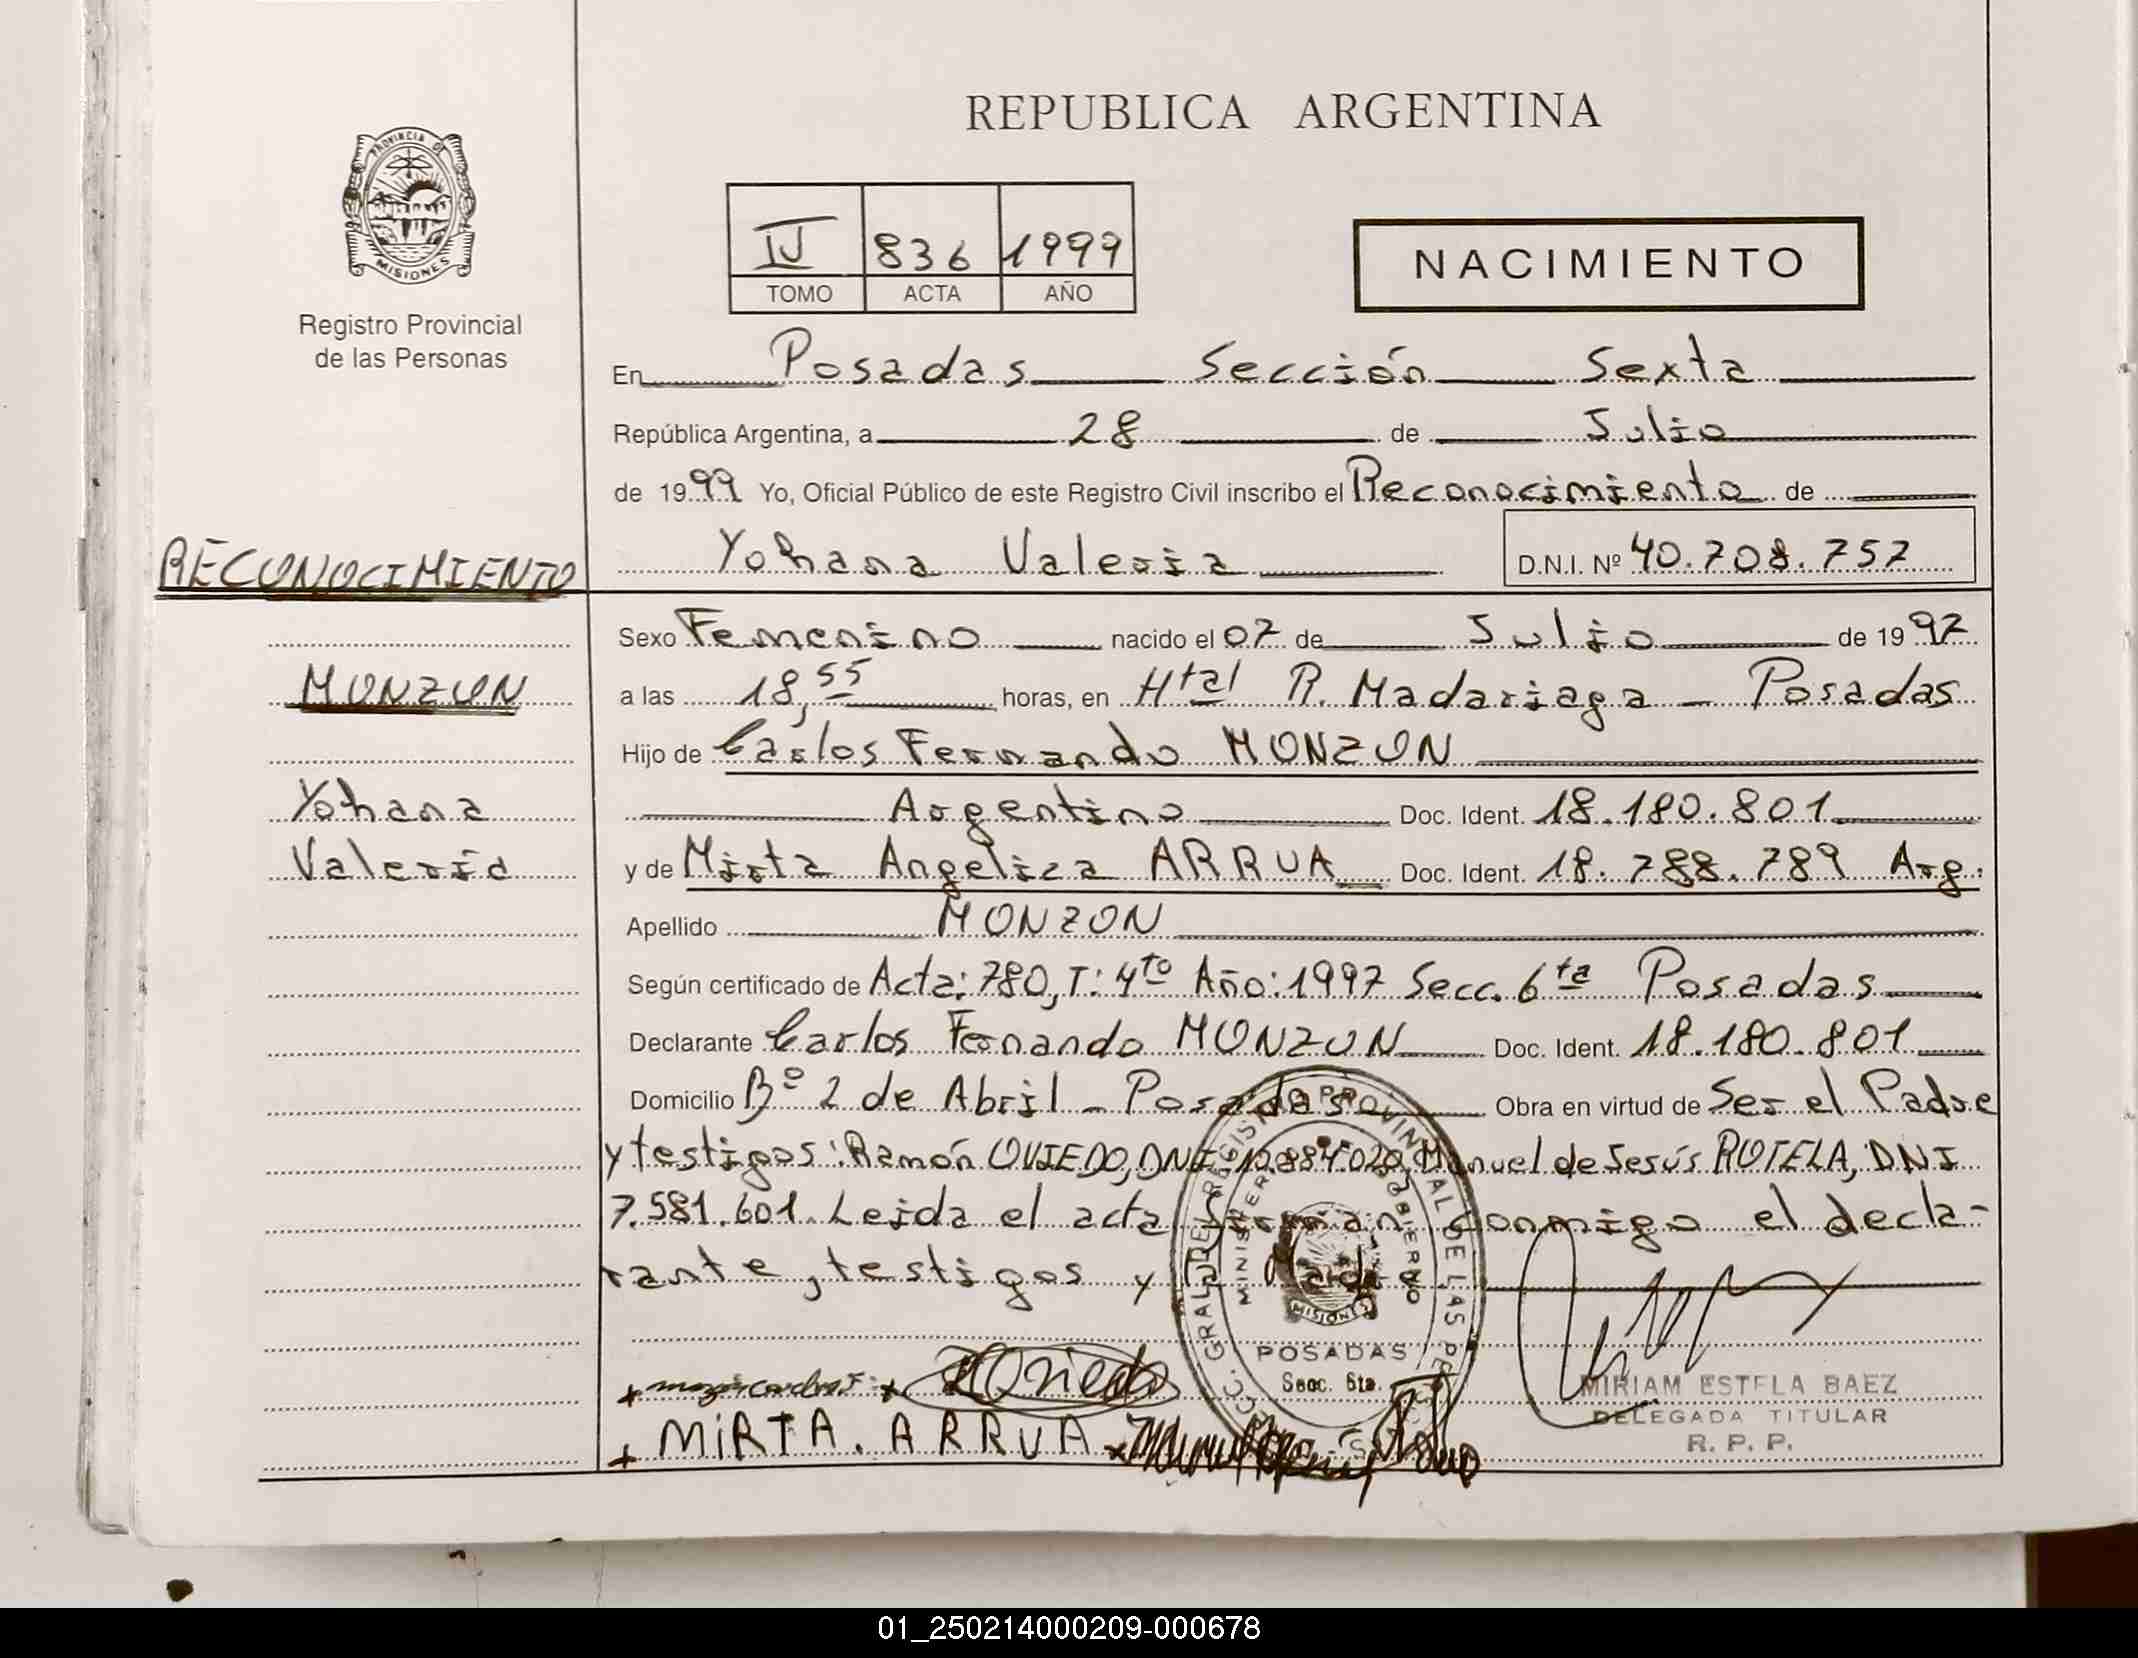 REPUBLICA ARGENTINA
PROVINCIA DE
MISIONES
Registro Provincial
de las Personas
836 1999
TOMO ACTA AÑO
NACIMIENTO
En Posadas Sección Sexta
República Argentina, a 28 de Julio
de 1999 Yo, Oficial Público de este Registro Civil inscribo el Reconocimiento de
Yohana Valeria D.N.I. Nº 40.708.757
RECONOCIMIENTO
Sexo Femenino nacido el 07 de Julio de 1997
MONZON
a las 18,55 horas, en Htal R. Madariaga - Posadas
Hijo de Carlos Fernando MONZON
Yohana
Argentino Doc. Ident. 18.180.801
Valeria
y de Mirta Angelica ARRUA Doc. Ident. 18.788.789 Arg.
Apellido MONZON
Según certificado de Acta: 780, T: 4to Año: 1997 Secc. 6ta Posadas
Declarante Carlos Fernando MONZON Doc. Ident. 18.180.801
Domicilio Bº 2 de Abril - Posadas Obra en virtud de Ser el Padre
y testigos: Ramón OVIEDO, DNI Manuel de Jesús ROTELA, DNI
7.581.601. Leida el acta firman conmigo el decla-
rante, testigos y Madre
POSADAS
Secc. 6ta.
MISIONES
MIRTA. ARRUA
MIRIAM ESTELA BAEZ
DELEGADA TITULAR
R. P. P.
01_250214000209-000678